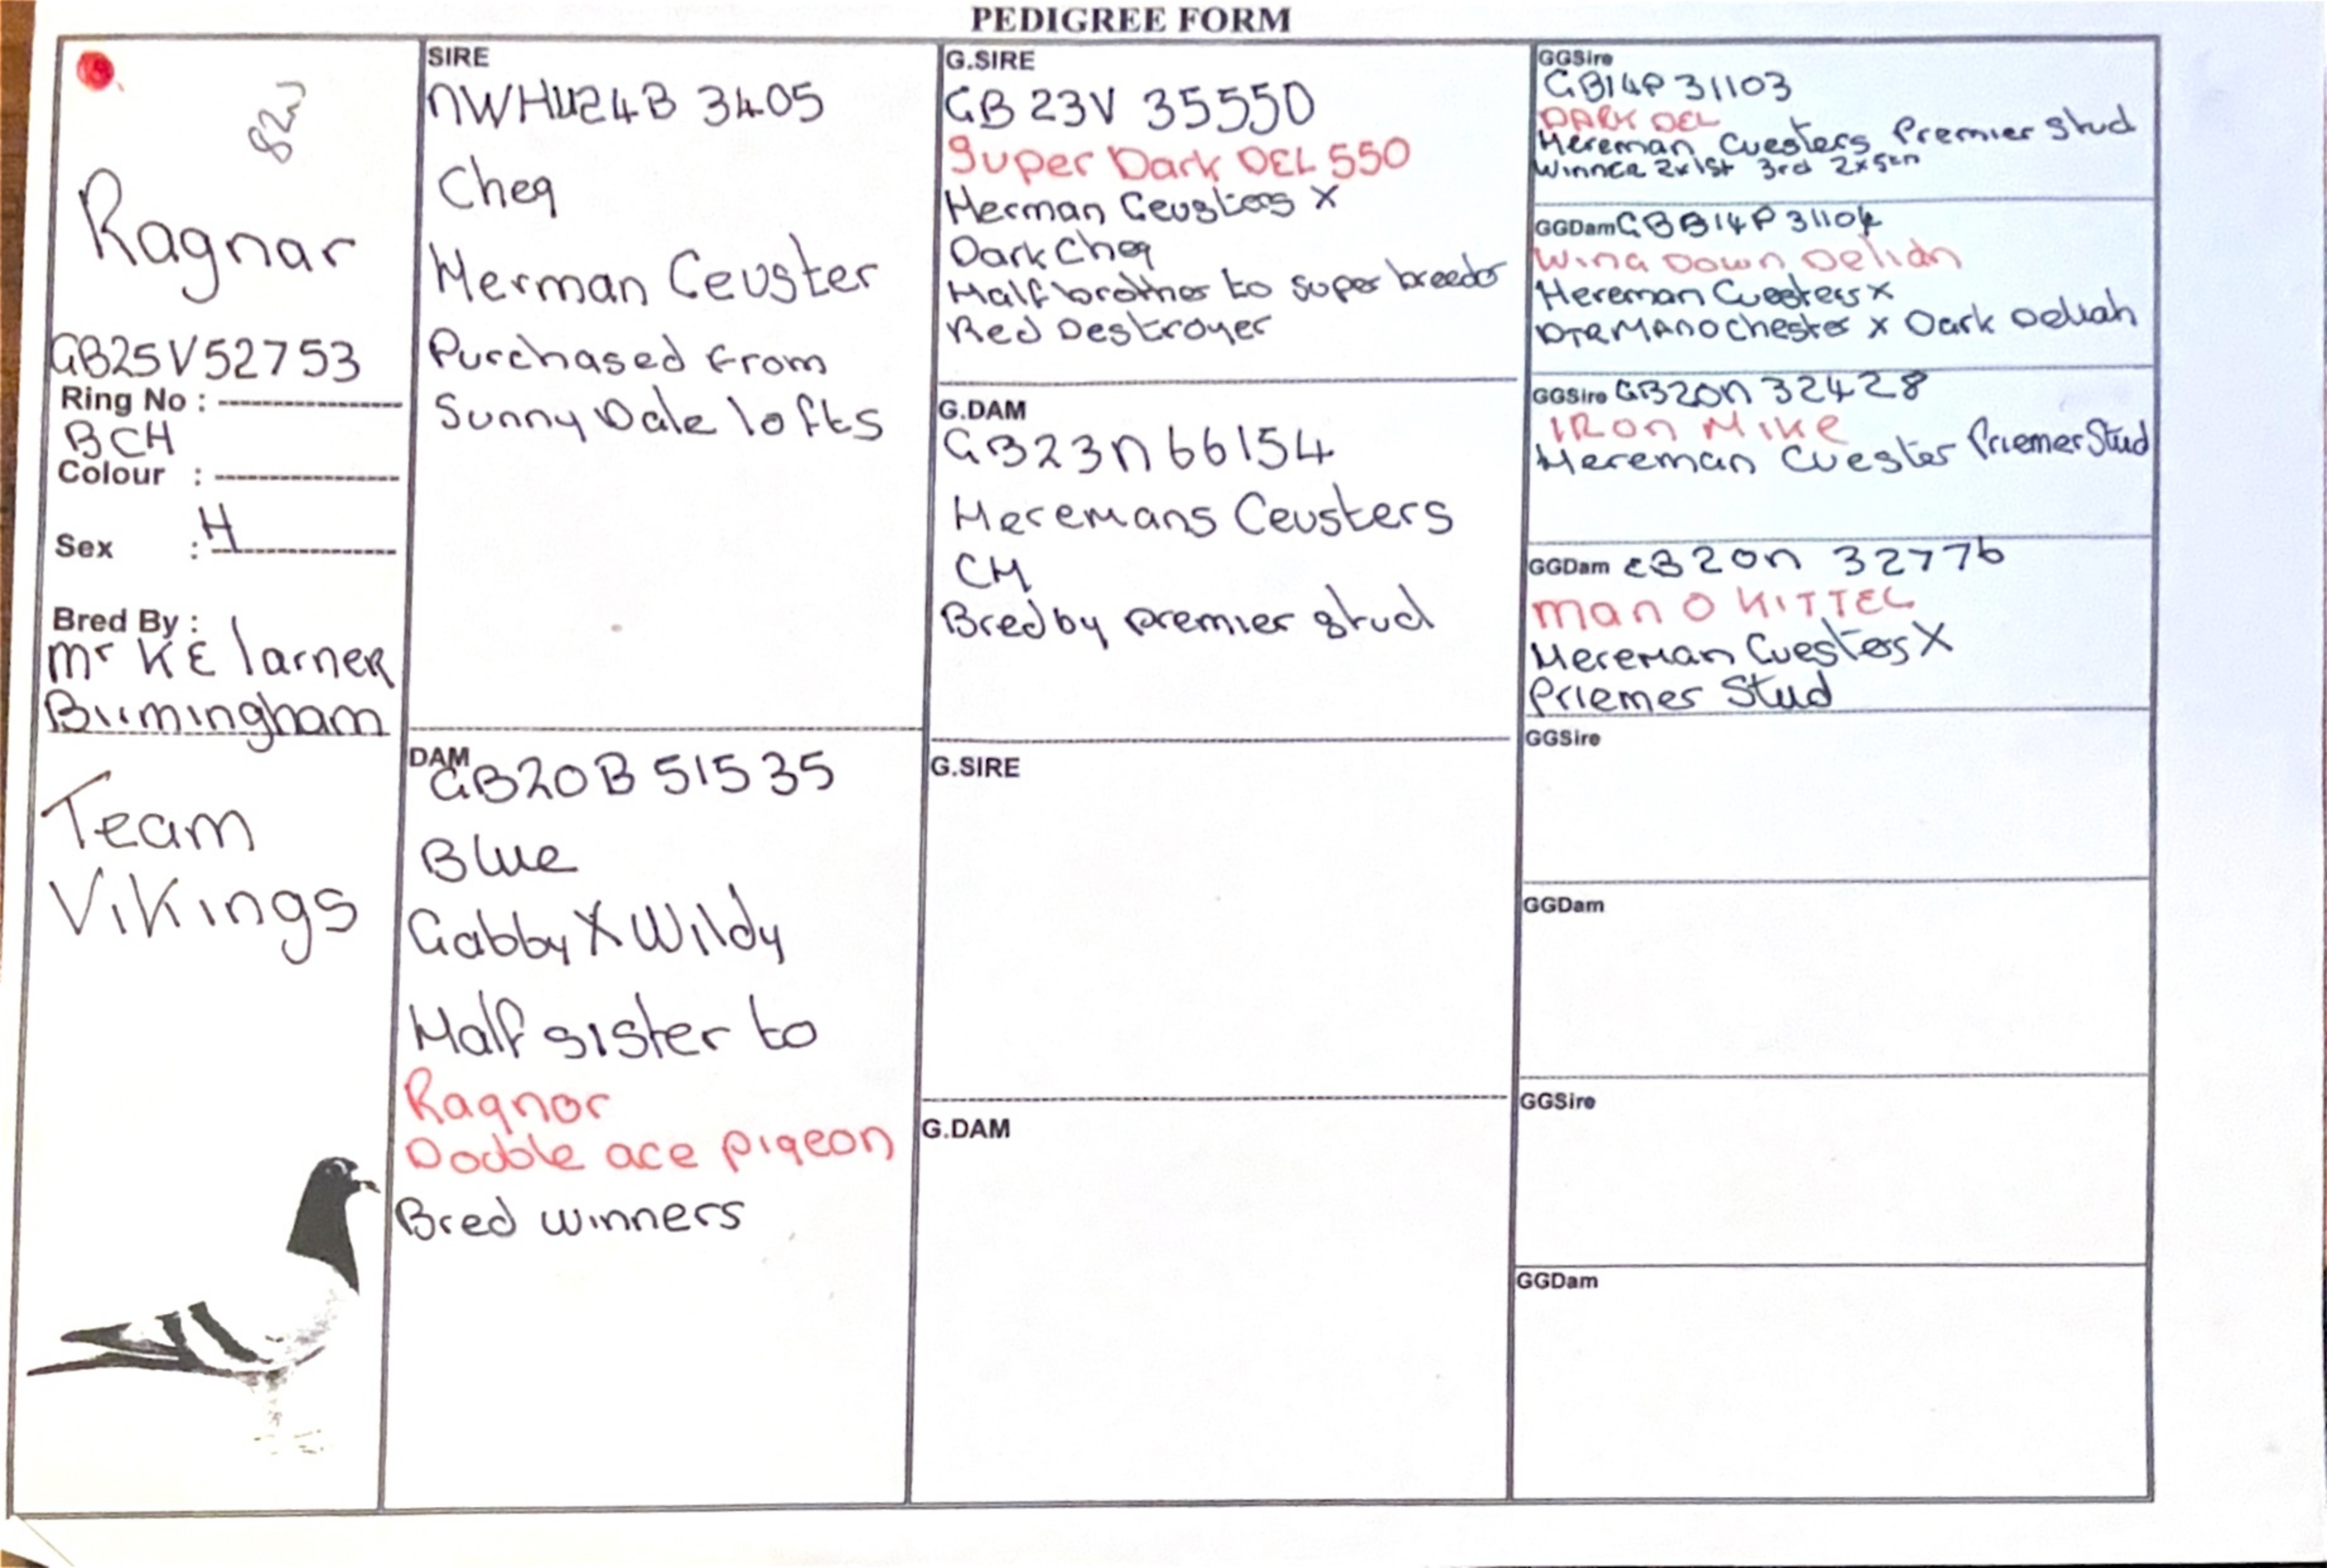 PEDIGREE FORM
82W
Ragnar
GB25V52753
Ring No :
BCH
Colour :
H
Sex :
Bred By :
Mr K E larner
Birmingham
Team
Vikings
SIRE
NWHU24B 3405
Cheq
Herman Ceuster
Purchased from
Sunny Dale lofts
DAM
GB20B 51535
Blue
Gabby X Wildy
Half sister to
Ragnor
Double ace pigeon
Bred winners
G.SIRE
GB 23V 35550
Super Dark DEL 550
Herman Ceusters X
Dark Cheq
Half brother to super breeder
Red Destroyer
G.DAM
GB23N66154
Heremans Ceusters
CH
Bred by premier stud
G.SIRE
G.DAM
GGSire
GB14P31103
DARK DEL
Hereman Cuesters Premier Stud
Winner 2x1st 3rd 2x5th
GGDam GBB14P31104
Wing Down Deliah
Hereman Cuesters x
x Dark Deliah
GGSire GB20N 32428
IRon Mike
Hereman Cuester Priemer Stud
GGDam GB20N 32776
Man O KITTEL
Hereman Cuesters X
Priemer Stud
GGSire
GGDam
GGSire
GGDam